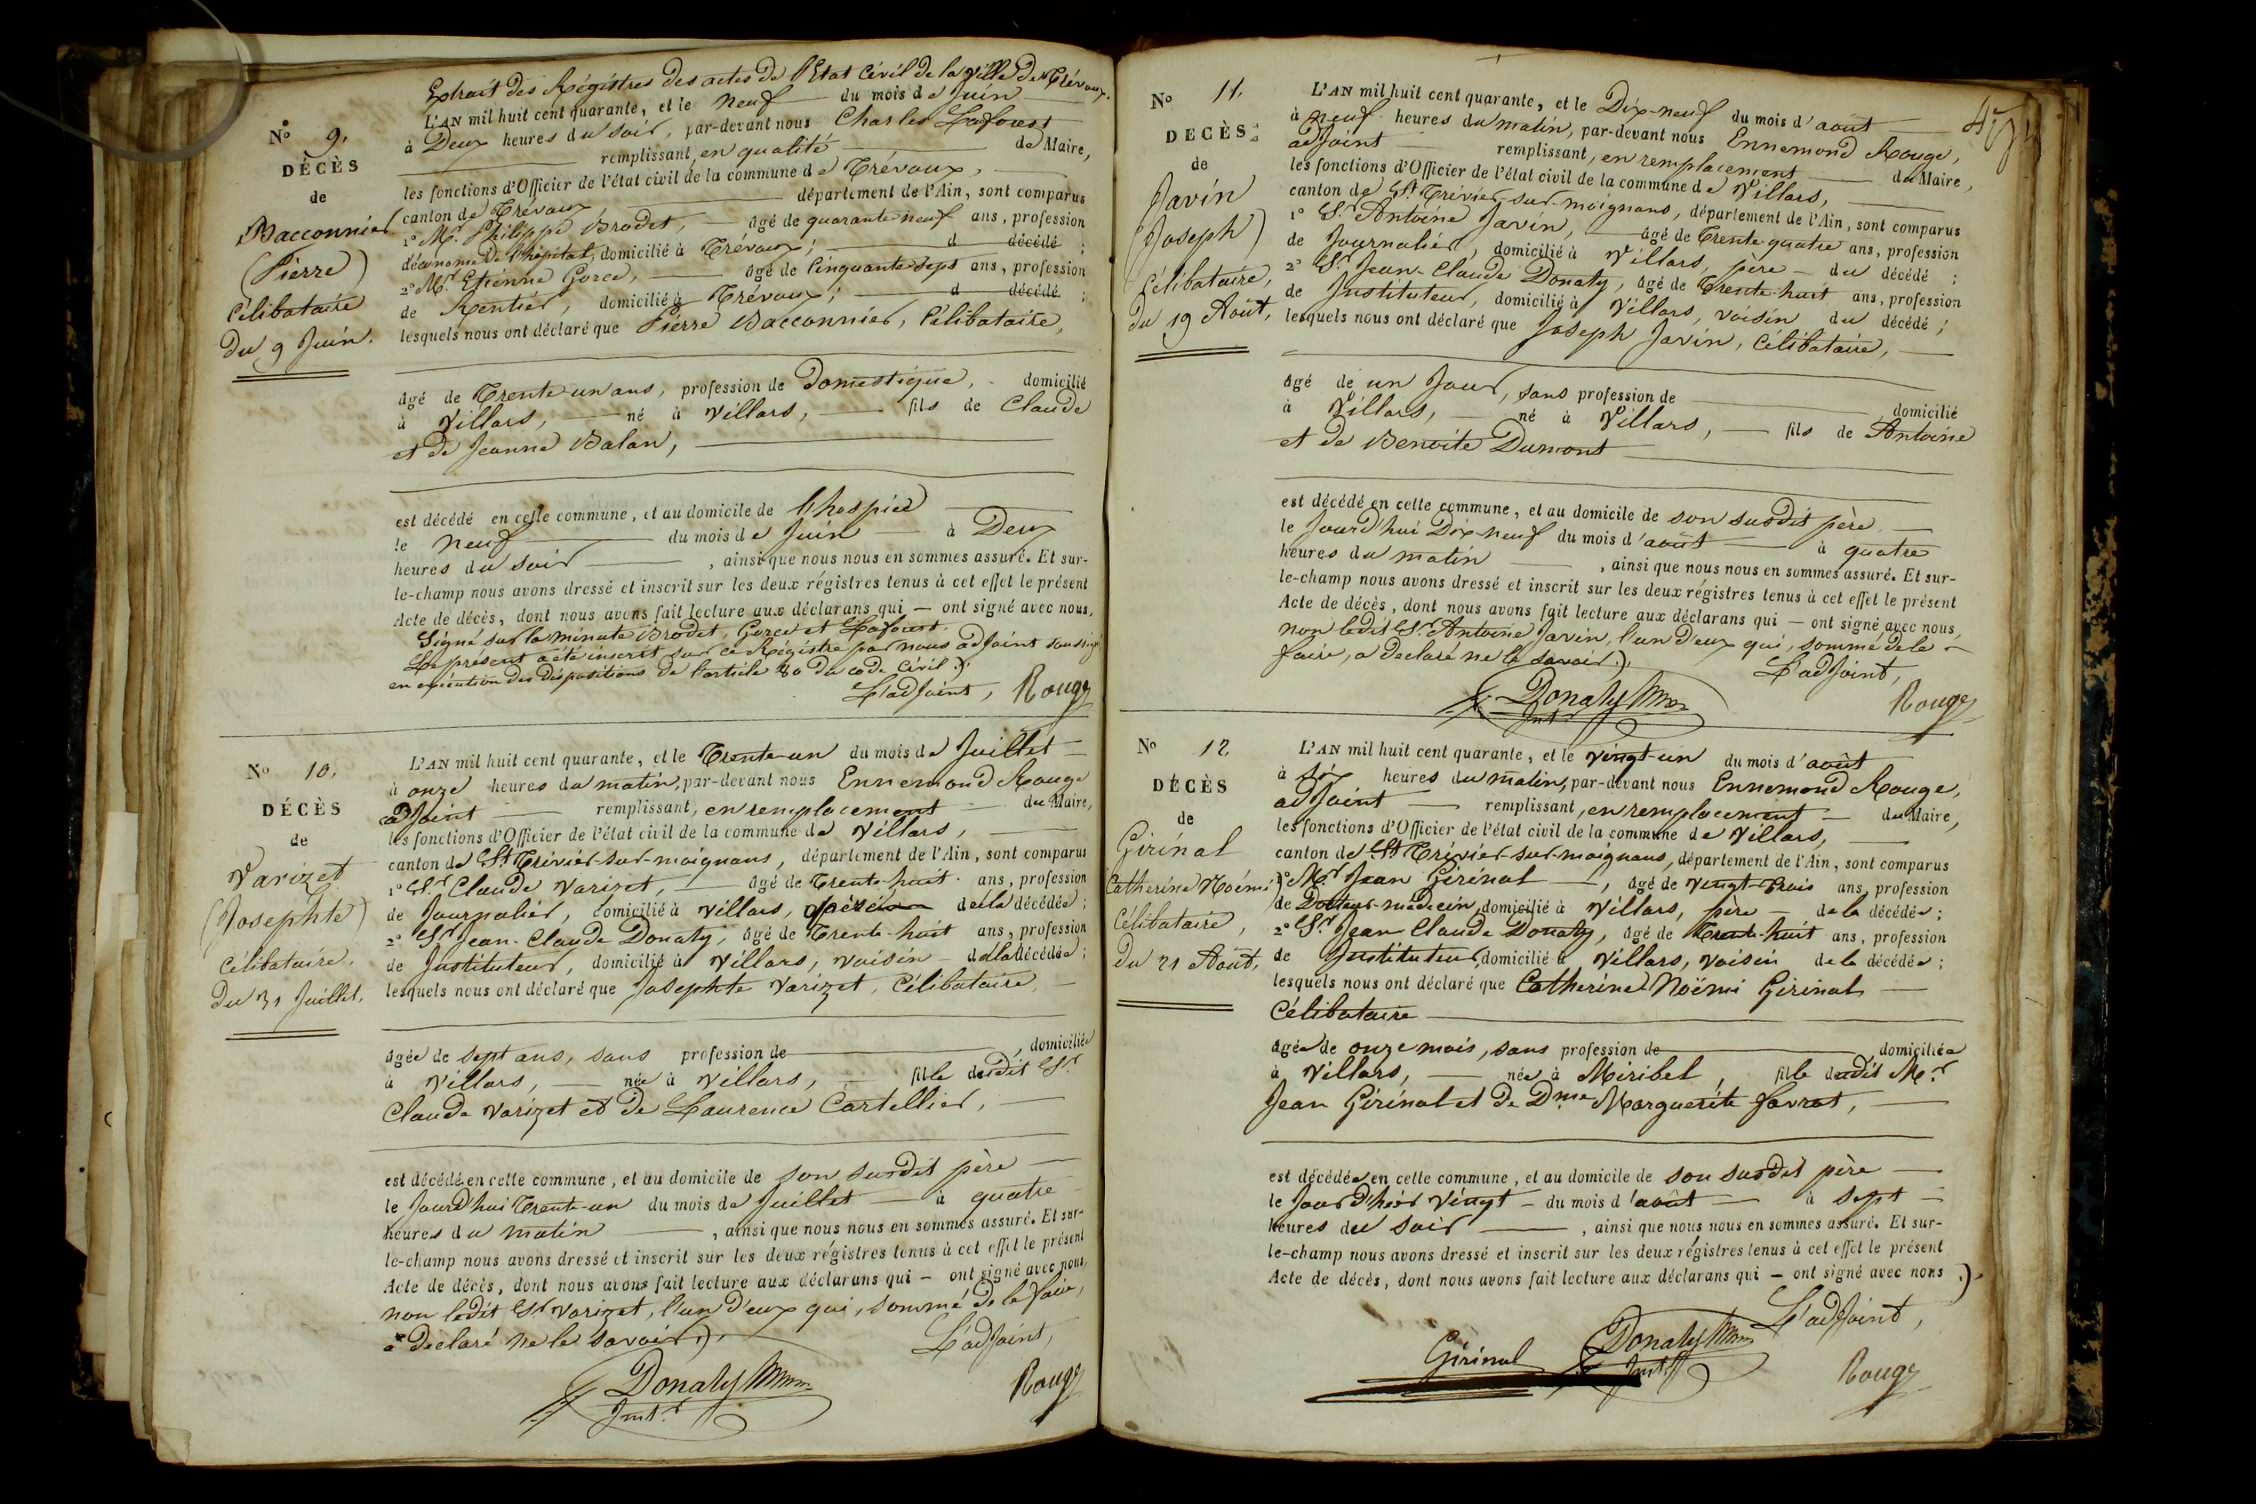 Extrait des Régistres des actes de l'Etat Civil de la Ville de Trévoux.
N° 9.
DÉCÈS
de
Bacconnier
(Pierre)
Célibataire
du 9 Juin.
L'AN mil huit cent quarante, et le neuf du mois de Juin
à Deux heures du soir, par-devant nous Charles Laforest
remplissant, en qualité de Maire,
les fonctions d'Officier de l'état civil de la commune de Trévoux,
canton de Trévoux département de l'Ain, sont comparus
1° Mr. Philippe Brodet, âgé de quarante neuf ans, profession
d'économe de l'hôpital, domicilié à Trévoux; d décédé ;
2° Mr. Etienne Gorce, âgé de Cinquante-sept ans, profession
de Rentier, domicilié à Trévoux; d décédé ;
lesquels nous ont déclaré que Pierre Bacconnier, Célibataire,
âgé de Trente un ans, profession de Domestique, domicilié
à Villars, né à Villars, fils de Claude
et de Jeanne Balan,
est décédé en cette commune, et au domicile de l'hospice
le neuf du mois de Juin à Deux
heures du soir , ainsi que nous nous en sommes assuré. Et sur-
le-champ nous avons dressé et inscrit sur les deux régistres tenus à cet effet le présent
Acte de décès, dont nous avons fait lecture aux déclarans qui — ont signé avec nous.
Signé sur la minute Brodet, Gorce et Laforest.
Le présent a été inscrit sur ce Régistre par nous adjoint soussigné
en exécution des dispositions de l'article 80 du code Civil ).
L'adjoint, Rouge
N° 10.
DÉCÈS
de
Varizet
(Josephte)
Célibataire.
du 31 Juillet.
L'AN mil huit cent quarante, et le Trente-un du mois de Juillet
à onze heures du matin, par-devant nous Ennemond Rouge
adjoint remplissant, en remplacement du Maire,
les fonctions d'Officier de l'état civil de la commune de Villars,
canton de St. Trivier-sur-moignans, département de l'Ain, sont comparus
1° Sr. Claude Varizet, âgé de Trente-huit ans, profession
de Journalier, domicilié à Villars, père de la décédée ;
2° Sr. Jean-Claude Donaty, âgé de Trente-huit ans, profession
de Instituteur, domicilié à Villars, voisin de la décédée ;
lesquels nous ont déclaré que Josephte Varizet, Célibataire,
âgée de sept ans, sans profession de , domiciliée
à Villars, née à Villars, fille dudit Sr.
Claude Varizet et de Laurence Cartellier,
est décédée en cette commune, et au domicile de son susdit père
le Jourd'hui Trente-un du mois de Juillet à quatre
heures du matin , ainsi que nous nous en sommes assuré. Et sur-
le-champ nous avons dressé et inscrit sur les deux régistres tenus à cet effet le présent
Acte de décès, dont nous avons fait lecture aux déclarans qui — ont signé avec nous,
non ledit Sr. Varizet, l'un d'eux qui, sommé de le faire,
a declaré ne le savoir ).
L'adjoint,
Donaty
Instr.
Rouge
N° 11.
DECÈS
de
Javin
(Joseph)
Célibataire,
du 19 Août.
L'AN mil huit cent quarante, et le Dix-neuf du mois d'août
à neuf heures du matin, par-devant nous Ennemond Rouge,
adjoint remplissant, en remplacement du Maire,
les fonctions d'Officier de l'état civil de la commune de Villars,
canton de St. Trivier-sur-moignans, département de l'Ain, sont comparus
1° Sr. Antoine Javin, âgé de Trente-quatre ans, profession
de Journalier, domicilié à Villars, père du décédé ;
2° Sr. Jean-Claude Donaty, âgé de Trente-huit ans, profession
de Instituteur, domicilié à Villars, voisin du décédé ;
lesquels nous ont déclaré que Joseph Javin, Célibataire,
âgé de un Jour, sans profession de , domicilié
à Villars, né à Villars, fils de Antoine
et de Benoite Dumont
est décédé en cette commune, et au domicile de son susdit père
le Jourd'hui Dix-neuf du mois d'août à quatre
heures du matin , ainsi que nous nous en sommes assuré. Et sur-
le-champ nous avons dressé et inscrit sur les deux régistres tenus à cet effet le présent
Acte de décès, dont nous avons fait lecture aux déclarans qui — ont signé avec nous,
non ledit Sr. Antoine Javin, l'un d'eux qui, sommé de le
faire, a declaré ne le savoir ).
L'adjoint,
Donaty
Instr.
Rouge
N° 12
DÉCÈS
de
Girinal
Catherine Noémi
Célibataire,
du 21 Août.
L'AN mil huit cent quarante, et le vingt-un du mois d'août
à six heures du matin, par-devant nous Ennemond Rouge,
adjoint remplissant, en remplacement du Maire,
les fonctions d'Officier de l'état civil de la commune de Villars,
canton de St Trivier-sur-moignans, département de l'Ain, sont comparus
1° Mr. Jean Girinal , âgé de vingt-trois ans, profession
de Docteur-médecin, domicilié à Villars, père de la décédée ;
2° Sr. Jean Claude Donaty, âgé de Trente-huit ans, profession
de Instituteur, domicilié à Villars, voisin de la décédée ;
lesquels nous ont déclaré que Catherine Noëmi Girinal
Célibataire
âgée de onze mois, sans profession de domiciliée
à Villars, née à Miribel, fille dudit Mr.
Jean Girinal et de Dme Marguerite Favrat,
est décédée en cette commune, et au domicile de son susdit père
le Jour d'hier vingt du mois d'août à sept
heures du soir , ainsi que nous nous en sommes assuré. Et sur-
le-champ nous avons dressé et inscrit sur les deux régistres tenus à cet effet le présent
Acte de décès, dont nous avons fait lecture aux déclarans qui — ont signé avec nous ).
L'adjoint,
Girinal
Donaty
Instr.
Rouge